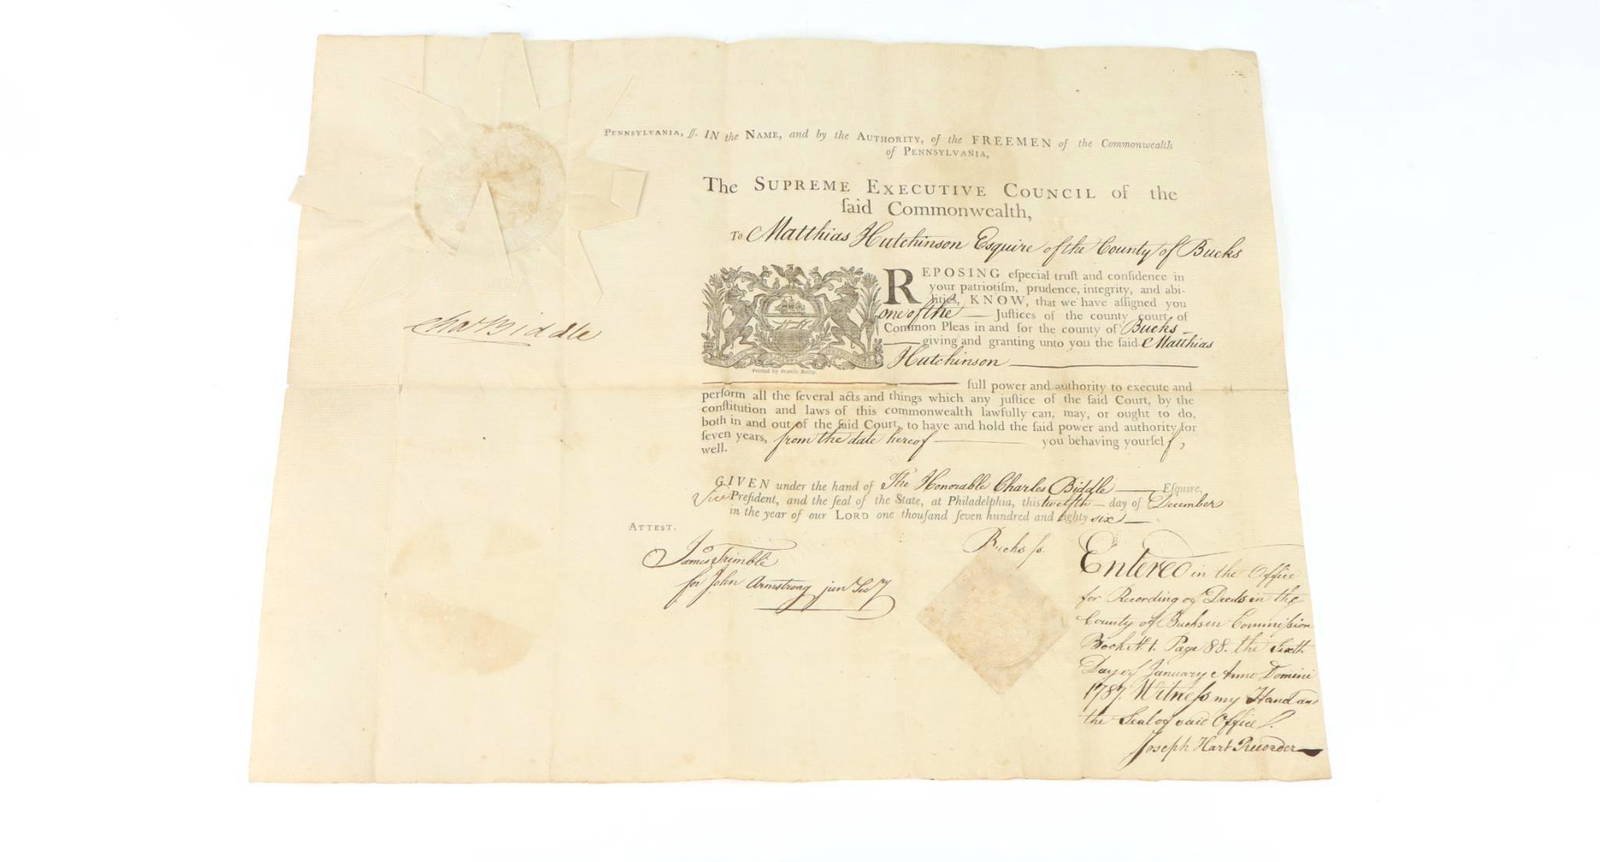 PENNSYLVANIA, ſſ. IN the NAME, and by the AUTHORITY, of the FREEMEN of the Commonwealth
of PENNSYLVANIA,
The SUPREME EXECUTIVE COUNCIL of the
ſaid Commonwealth,
To Matthias Hutchinson Esquire of the County of Bucks
REPOSING eſpecial truſt and confidence in
your patriotiſm, prudence, integrity, and abi-
lities, KNOW, that we have aſſigned you
one of the Juſtices of the county court of
Common Pleas in and for the county of Bucks
giving and granting unto you the ſaid Matthias
Hutchinson
Printed by Francis Bailey.
full power and authority to execute and
perform all the ſeveral acts and things which any juſtice of the ſaid Court, by the
conſtitution and laws of this commonwealth lawfully can, may, or ought to do,
both in and out of the ſaid Court, to have and hold the ſaid power and authority for
ſeven years, from the date hereof you behaving yourſelf,
well.
GIVEN under the hand of The Honorable Charles Biddle Eſquire,
Vice Preſident, and the ſeal of the State, at Philadelphia, this twelfth day of December
in the year of our LORD one thouſand ſeven hundred and eighty six
Chas Biddle
ATTEST.
Jas Trimble
for John Armstrong junr Secy
Bucks ſs.
Entered in the Office
for Recording of Deeds in the
County of Bucks in Commiſsion
Book No. 1. Page 88. the Sixth
Day of January Anno Domini
1787. Witneſs my Hand and
the Seal of said Office
Joseph Hart Recorder